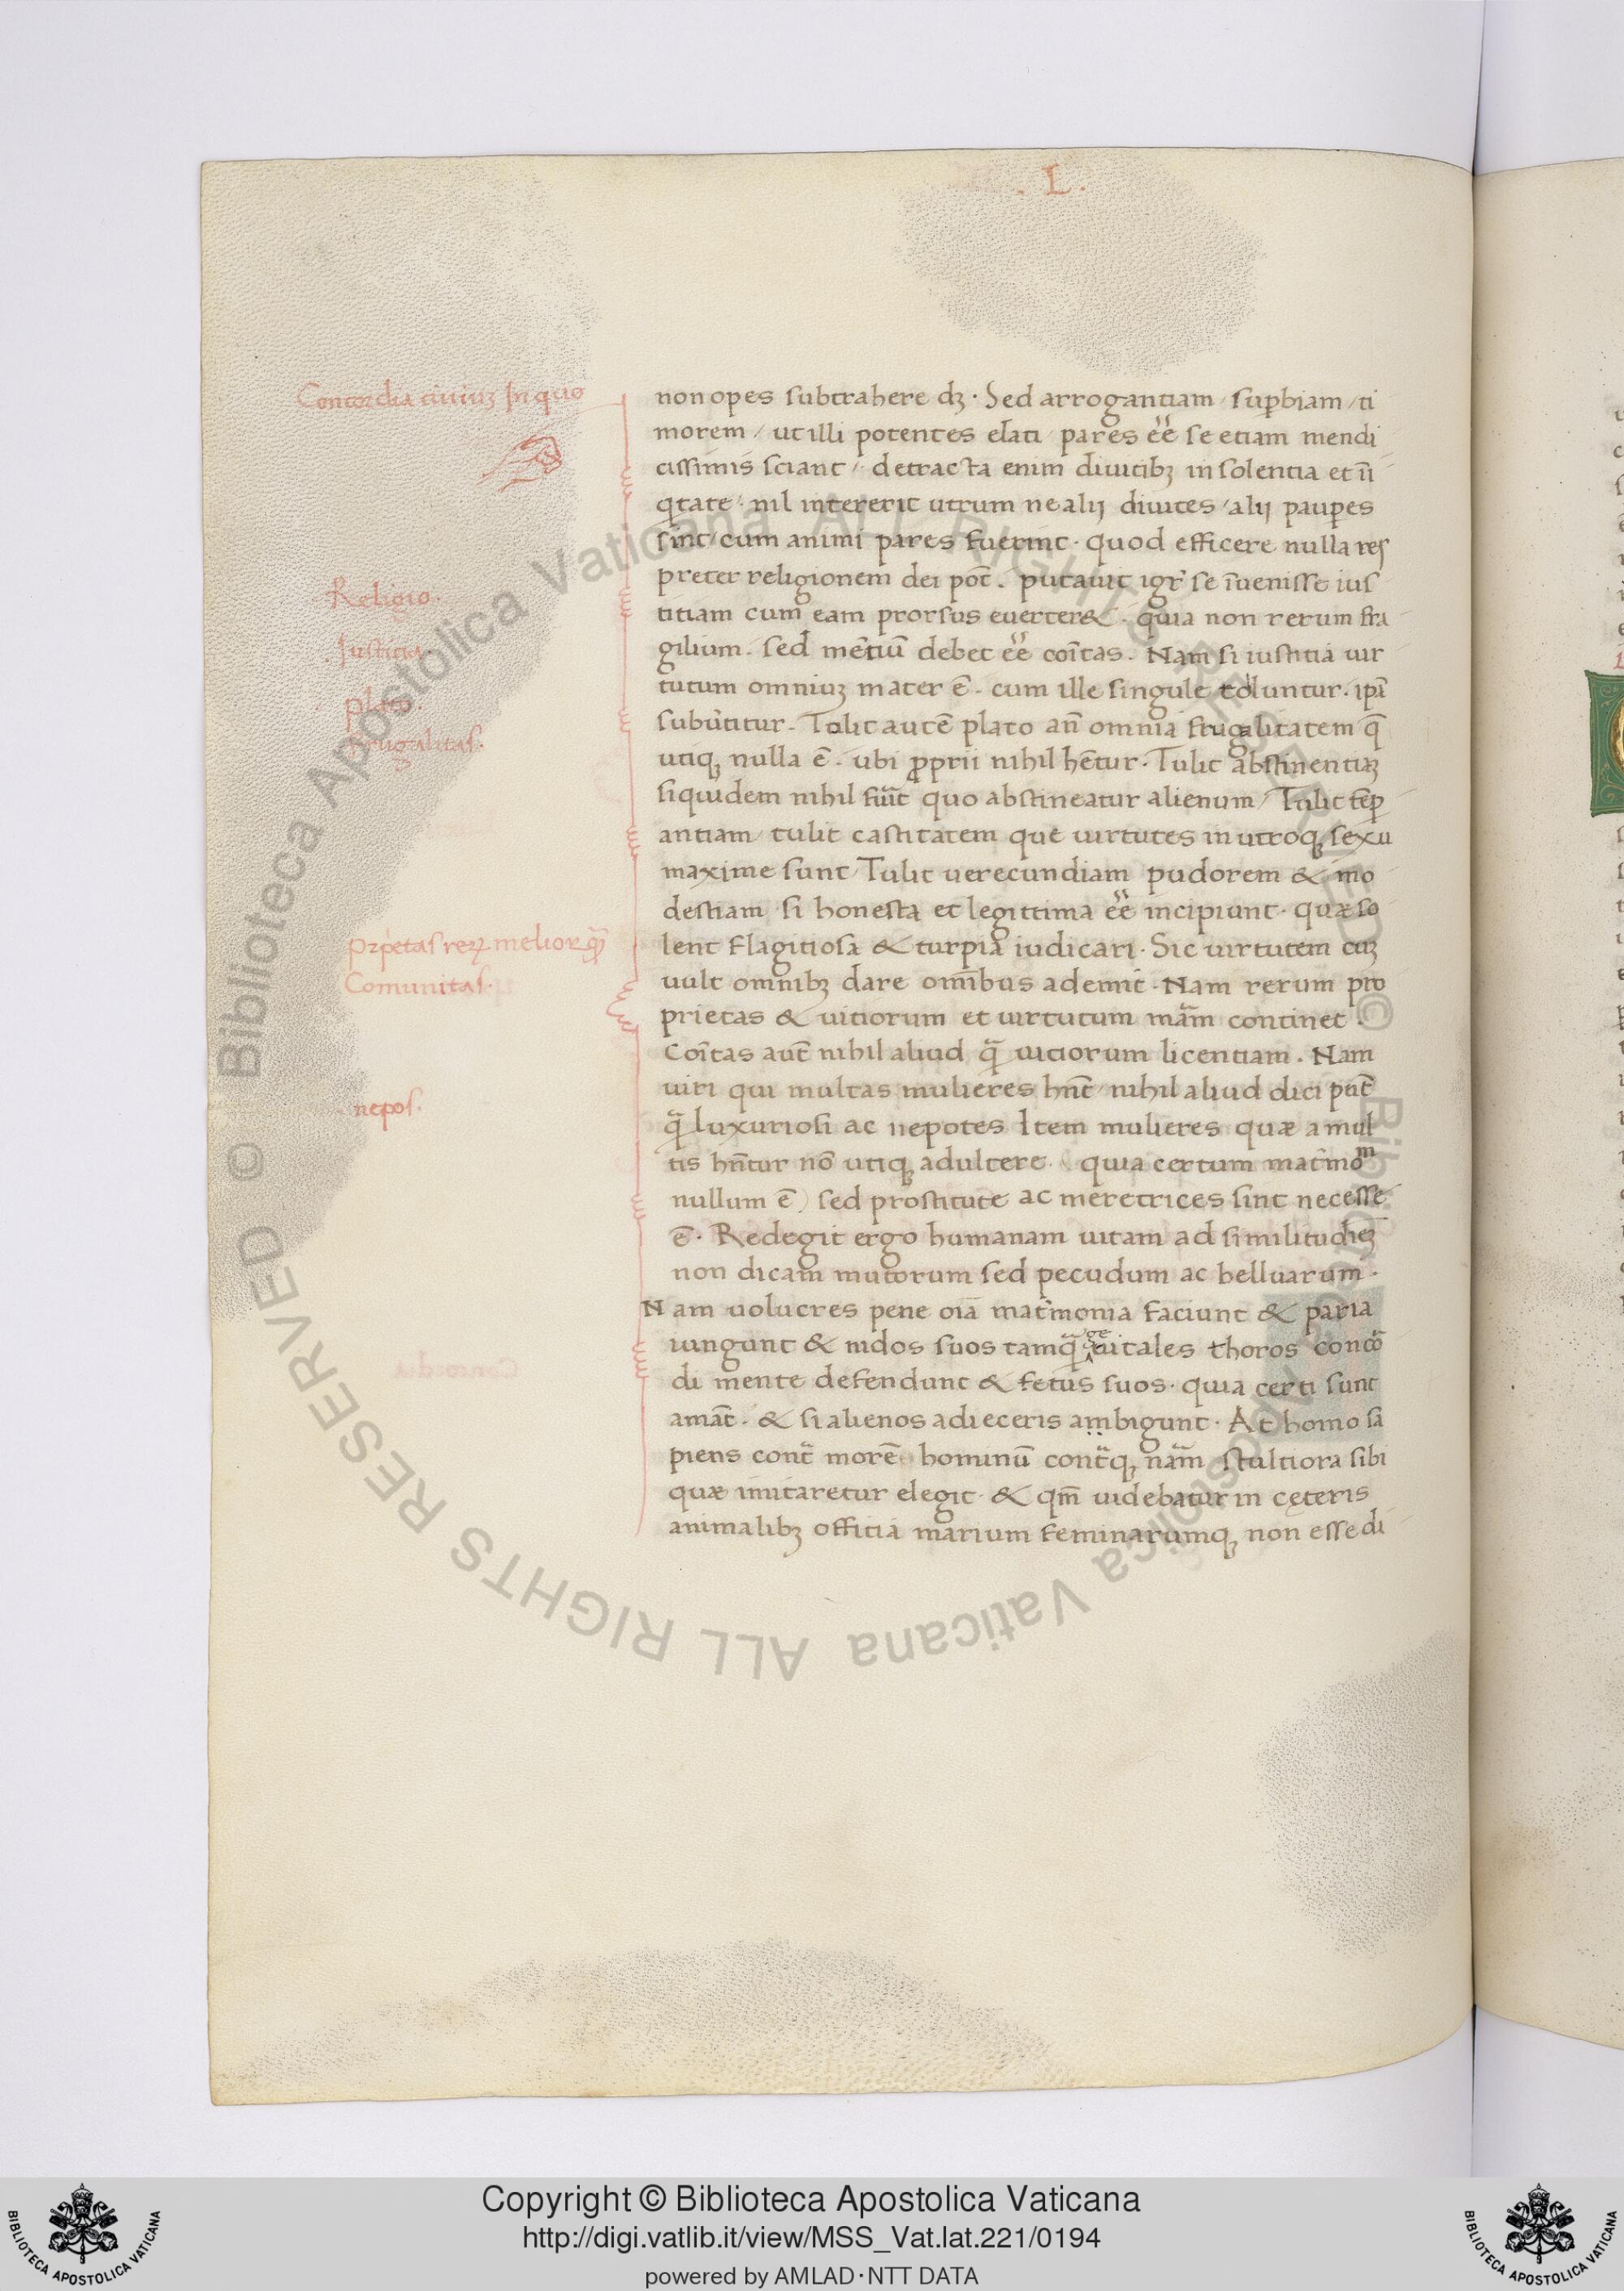 . L .
Concordia ciuiuꝫ In quo
non opes subtrahere dꝫ · Sed arrogantiam / suꝑbiam / ti
morem / ut illi potentes elati / pares eē se etiam mendi
cissimis sciant / detracta enim diuitibꝫ insolentia et īi
qtate · nil intererit utrum ne alij diuites / alij pauꝑes
sint / cum animi pares fuerint · quod efficere nulla res
preter religionem dei pot̄ . putauit igr̄ se īuenisse ius
Religio ·
titiam cum eam prorsus euerter& · quia non rerum fra
gilium . sed mētiū debet eē coītas . Nam si iustitia uir
. Justitia .
tutum omniuꝫ mater ē . cum ille singule tolluntur . ip̄i
plato .
subūtitur . Tolit autē plato an̄ omnia frugalitatem q̄
Frugalitas .
utiqꝫ nulla ē . ubi ꝓprii nihil hētur . Tulit abstinentiaꝫ
siquidem nihil fuīt quo abstineatur alienum / Tulit tēꝑ
antiam / tulit castitatem que uirtutes in utroqꝫ sexu
maxime sunt / Tulit uerecundiam pudorem & mo
destiam si honesta et legittima eē incipiunt · quæ so
Prp̄etas reꝝ melior q̄
lent flagitiosa & turpia iudicari . Sic uirtutem cuꝫ
Comunitas .
uult omnibꝫ dare om̄ibus ademit . Nam rerum pro
prietas & uitiorum et uirtutum mām continet .
Coītas aut̄ nihil aliud q̄ uitiorum licentiam . Nam
uiri qui multas mulieres hn̄t / nihil aliud dici pn̄t
nepos .
q̄ luxuriosi ac nepotes Item mulieres quæ a mul
tis hn̄tur nō utiqꝫ adultere . quia certum mat̄moᵐ
nullum ē ) sed prostitute ac meretrices sint necesse
ē . Redegit ergo humanam uitam ad similitudieꝫ
non dicam mutorum sed pecudum ac belluarum .
Nam uolucres pene oīa mat̄monia faciunt & paria
iungunt & nidos suos tamq̄ geitales thoros concō
di mente defendunt & fetus suos · quia certi sunt
amāt . & si alienos adieceris ambigunt · At homo sa
piens cont̄ morē hominū cont̄qꝫ nām stultiora sibi
quæ imitaretur elegit · & qm̄ uidebatur in cęteris
animalibꝫ officia marium feminarumqꝫ non esse di
© Biblioteca Apostolica Vaticana ALL RIGHTS RESERVED © Biblioteca Apostolica Vaticana ALL RIGHTS RESERVED
Copyright © Biblioteca Apostolica Vaticana
http://digi.vatlib.it/view/MSS_Vat.lat.221/0194
powered by AMLAD · NTT DATA
BIBLIOTECA APOSTOLICA VATICANA
BIBLIOTECA APOSTOLICA VATICANA